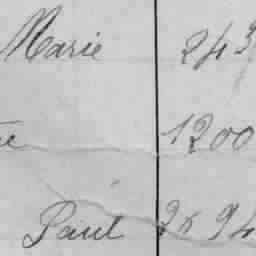 Marie 243
1200
Paul 2694